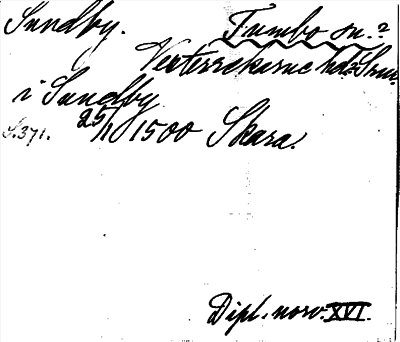 Sundby. Tumbo sn.?
Vesterrekarne hd? Srm.
i Sundby
S.371. 25/1 1500 Skara.
Dipl. norv. XVI.